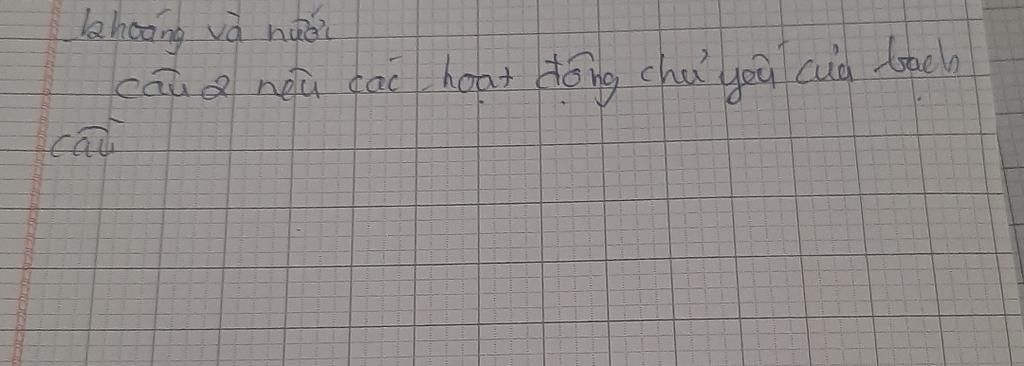 khoáng và nước
câu 2 nêu các hoạt động chủ yếu của bạch
cầu